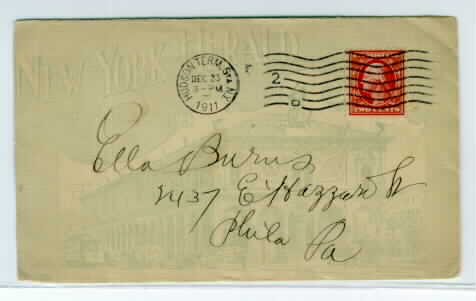 NEW YORK HERALD
HUDSON TERM. STA. N.Y.
DEC 23
8-PM
1911
2
TWO CENTS
Ella Burns
2437 E Hazzard St
Phila Pa